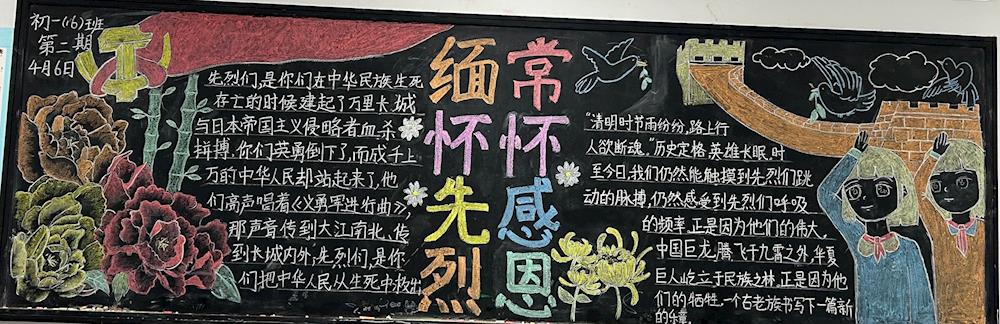 初一(16)班
第二期
4月6日
先烈们,是你们在中华民族生死
存亡的时候建起了万里长城
与日本帝国主义侵略者血杀
拼搏,你们英勇倒下了,而成千上
万的中华人民却站起来了,他
们高声唱着《义勇军进行曲》,
那声音传到大江南北、传
到长城内外,先烈们,是你
们把中华人民从生死中救出
缅怀先烈
常怀感恩
"清明时节雨纷纷,路上行
人欲断魂。"历史定格,英雄长眠,时
至今日,我们仍然能触摸到先烈们跳
动的脉搏,仍然感受到先烈们呼吸
的频率,正是因为他们的伟大。
中国巨龙,腾飞于九霄之外,华夏
巨人屹立于民族之林,正是因为他
们的牺牲,一个古老族书写下一篇新
的乐章。